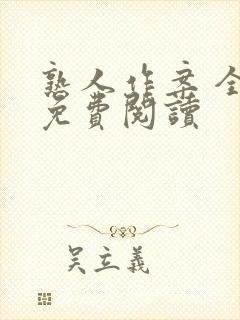 熟人作案全
免費閱讀
吴立義